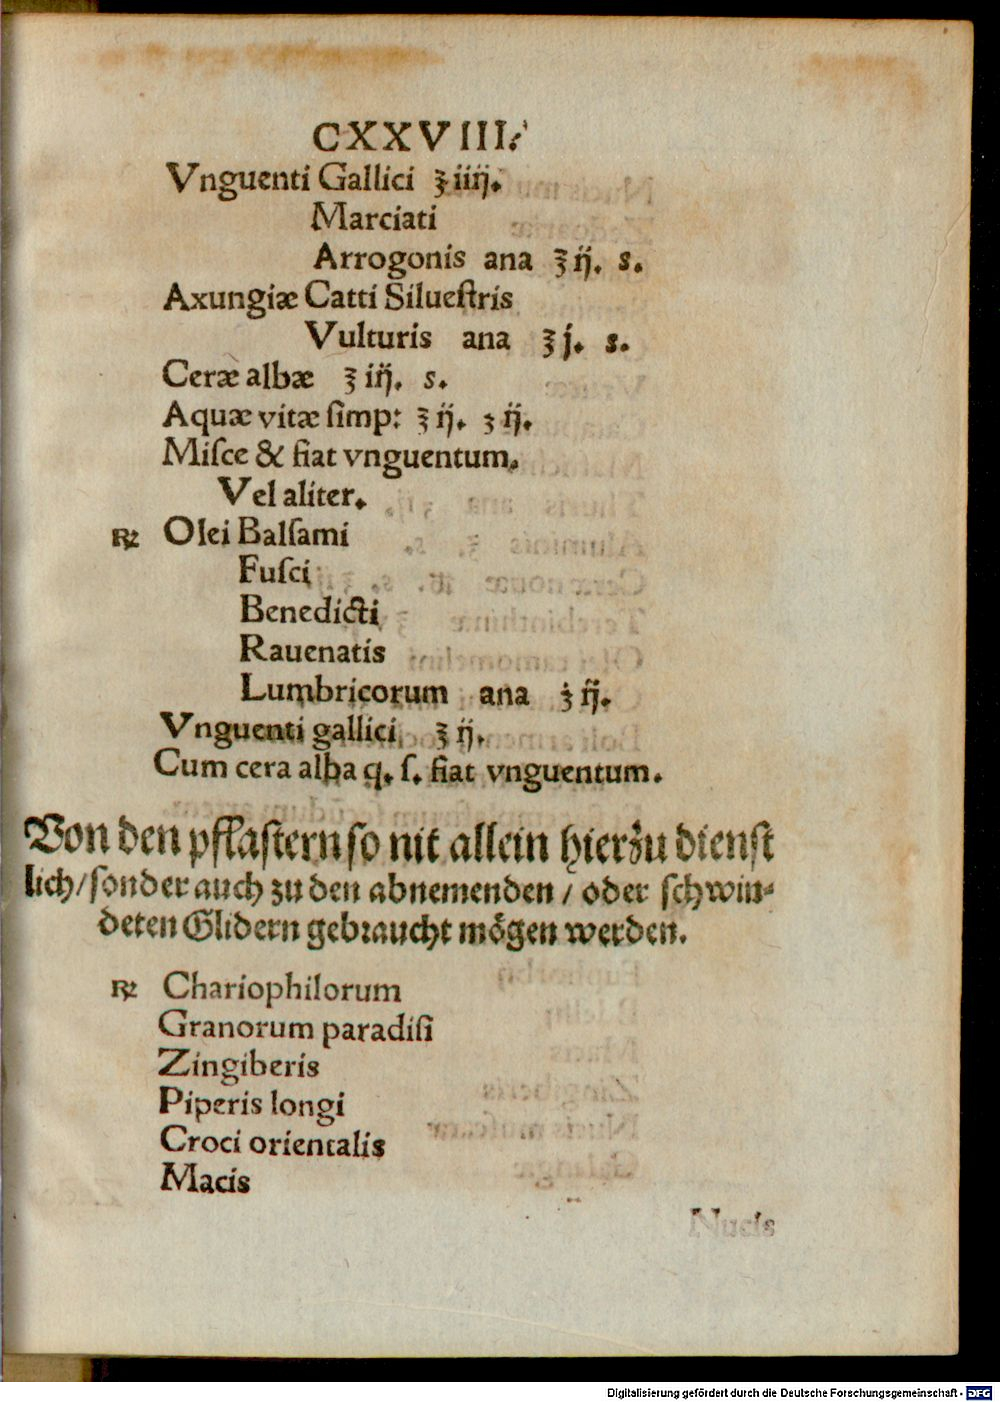 CXXVIII.
Vnguenti Gallici ℥ iiij.
Marciati
Arrogonis ana ℥ ij. s.
Axungiæ Catti Silueſtris
Vulturis ana ℥ j. s.
Ceræ albæ ℥ iij. s.
Aquæ vitæ ſimp: ℥ ij. ʒ ij.
Miſce & fiat vnguentum.
Vel aliter.
℞ Olei Balſami
Fuſci
Benedicti
Rauenatis
Lumbricorum ana ℥ ij.
Vnguenti gallici ℥ ij.
Cum cera alba q. ſ. fiat vnguentum.
Von den pflaſtern ſo nit allein hierzu dienſt
lich/ ſonder auch zu den abnemenden / oder ſchwin⸗
deten Glidern gebraucht moͤgen werden.
℞ Chariophilorum
Granorum paradiſi
Zingiberis
Piperis longi
Croci orientalis
Macis
Nucis
Digitalisierung gefördert durch die Deutsche Forschungsgemeinschaft - DFG